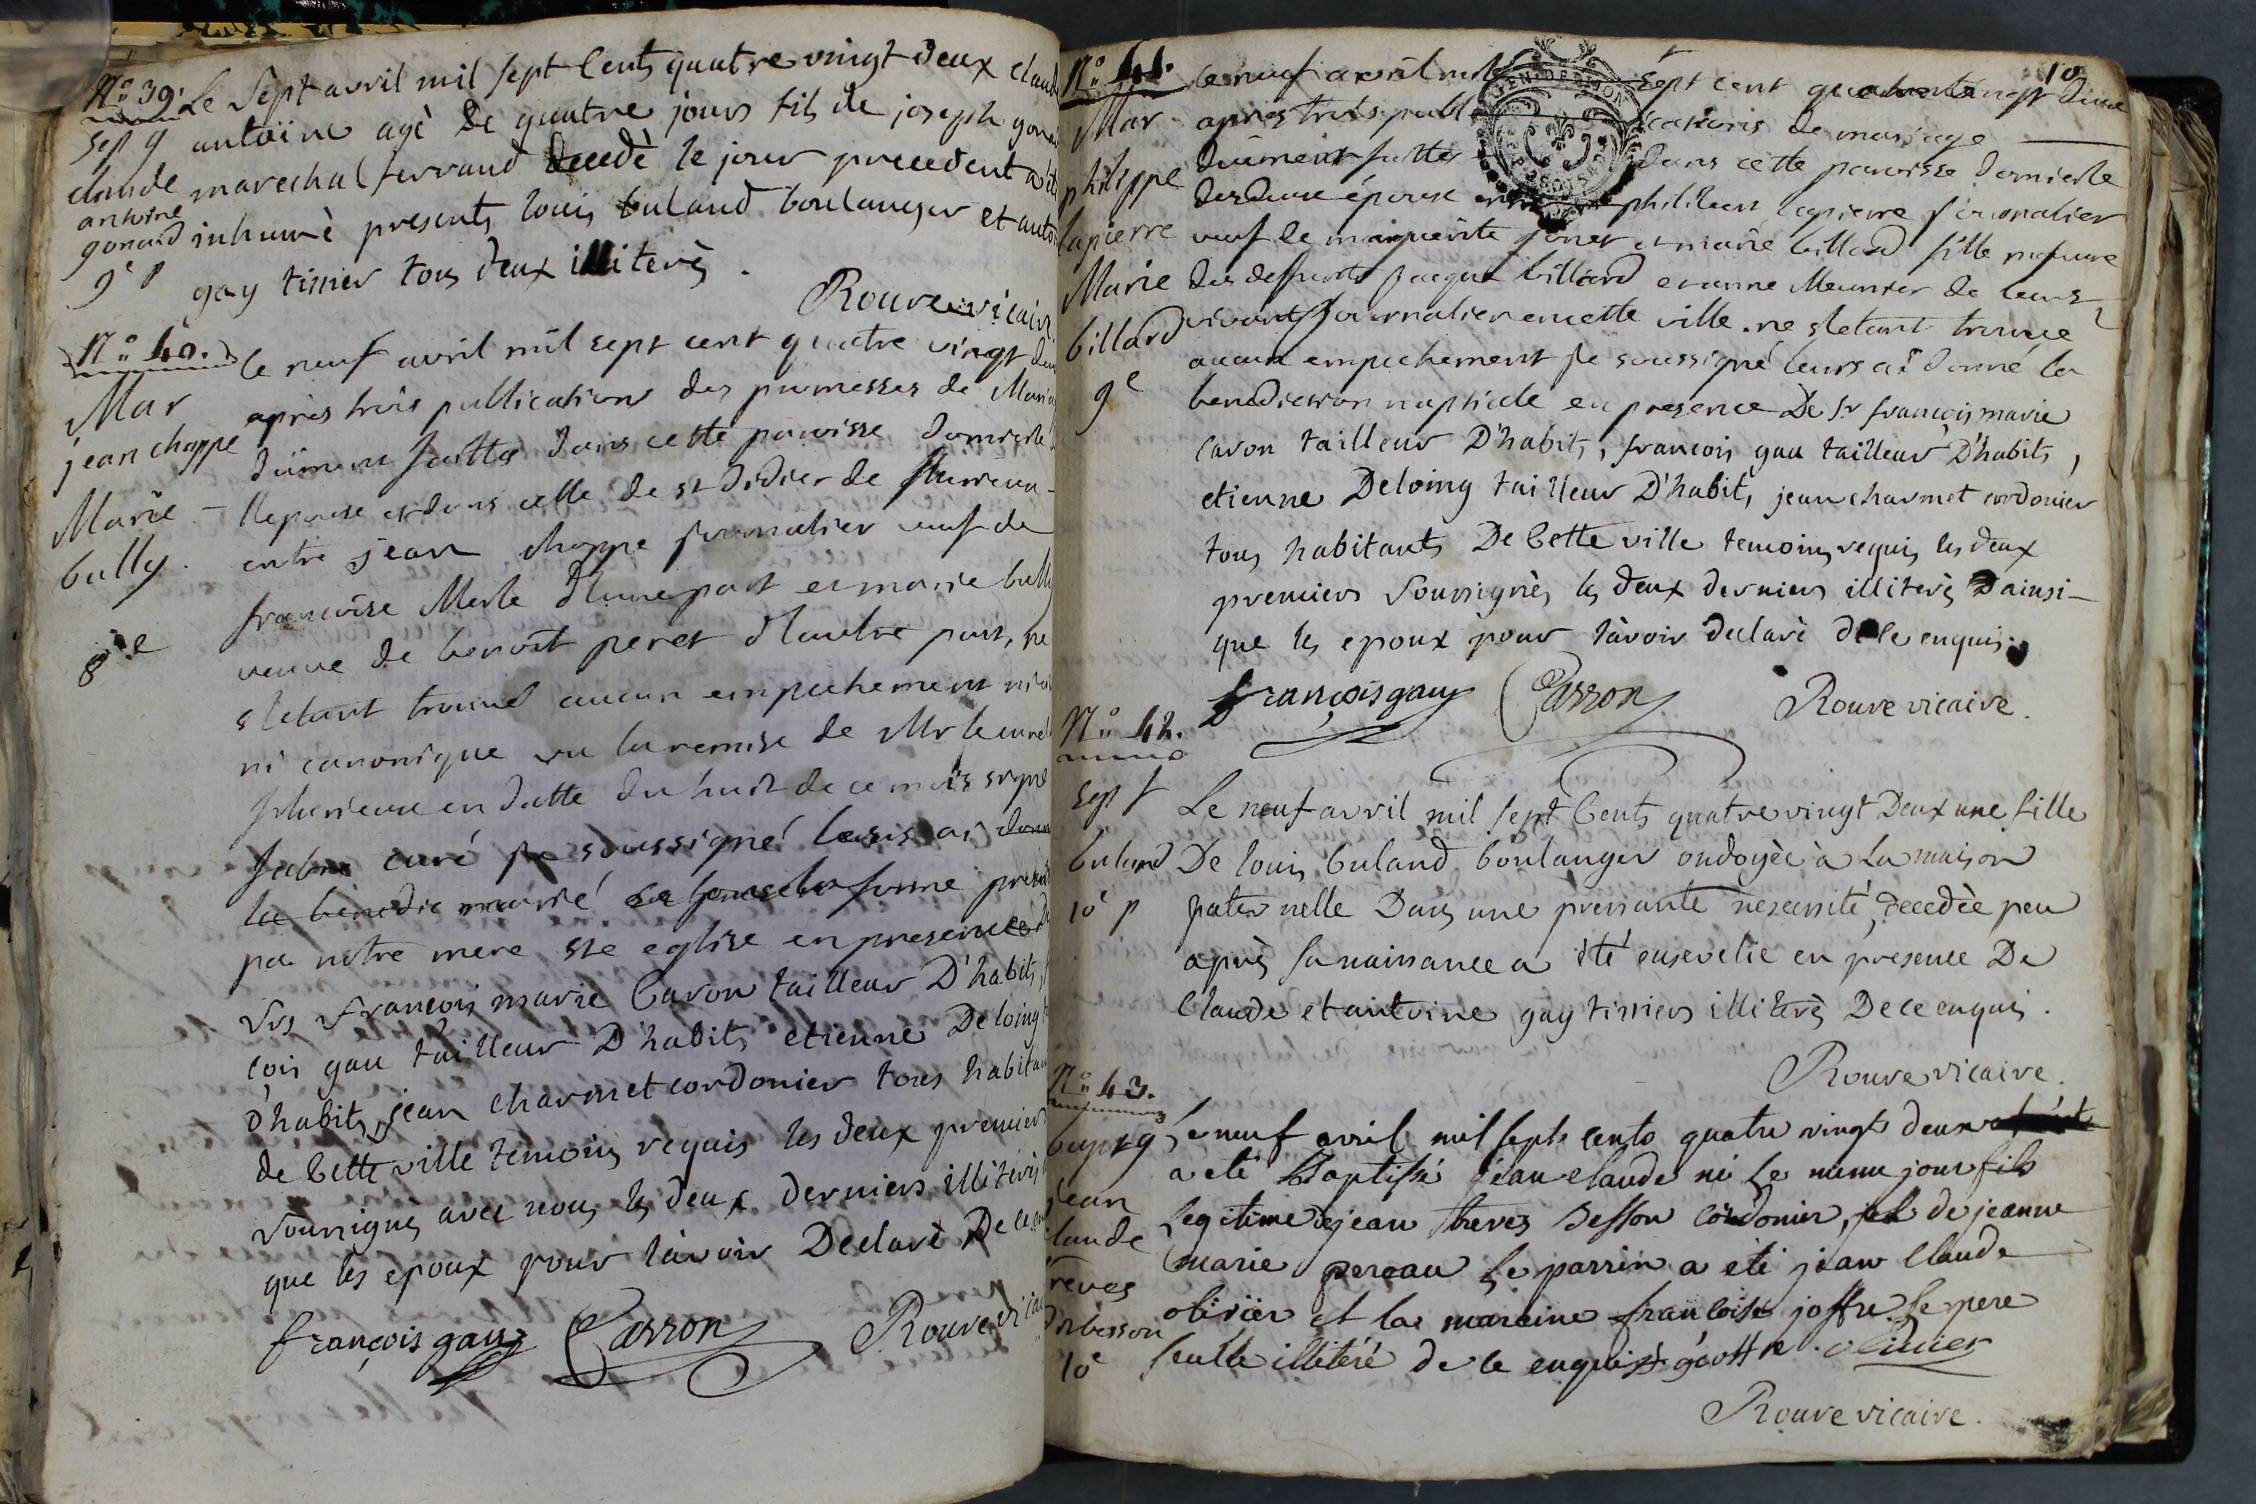 N° 39. Le Sept avril mil sept Cents quatre vingt deux claude
sep 9 antoine agè De quatre jours fils de joseph gonard
claude marechal ferrand decedè le jour precedent a été
antoine
gonard inhumè presents louis buland boulanger et antoine
9e p gay tissier tous deux illiterès .
Rouve vicaire
N° 40. le neuf avril mil sept cent quatre vingt deux
Mar après trois publications des promesses de Mariage
jean choppe dûment faittes dans cette paroisse domicile
Marie - de l'epouse et dans celle de st Didier de
bully . entre jean choppe journalier veuf de
françoise Merle d'une part et marie bully
8e veuve de benoit peret d'autre part, ne
s'etant trouvé aucun empechement ni
ni canonique vu la remise de Mr le curé
en datte du huit de ce mois signé
curé je soussigné leurs ai donné
la benedic mariré forme
par notre mere ste eglise en presence De
Srs françois marie Caron tailleur D'habits,
çois gau tailleur D'habits etienne Deloing
D'habits, jean charmet cordonier tous habitans
de Cette ville temoins requis les deux premiers
soussignés avec nous les deux derniers illiterés
que les epoux pour l'avoir Declarè De ce
françois gau Carron Rouve vicaire
10
N° 41. le neuf avril mil sept cent quatre vingt deux
Mar après trois publications de mariage
philippe duëment faittes dans cette paroisse domicile
des deux épouse entre philibert lapierre journalier
lapierre veuf de marguerite et marie billard fille majeure
Marie des deffunts jacque billard et anne Meunier de leurs
billard vivants journalier en cette ville . ne s'etant trouvé
aucun empechement je soussigné leurs ai donné la
9e benediction nuptiale en presence De Sr françois marie
Caron tailleur D'habits, francois gau tailleur D'habits,
etienne Deloing tailleur D'habits, jean charmet cordonier
tous habitants De Cette ville temoins requis les deux
premiers soussignès les deux derniers illiterès ainsi -
que les epoux pour l'avoir declarè de ce enquis.
françois gau Carron Rouve vicaire.
N° 42.
sept Le neuf avril mil sept Cents quatre vingt Deux une fille
buland De louis buland boulanger ondoyèe à La maison
10e p paternelle Dans une pressante necessité, Decedèe peu
après sa naissance a été ensevelie en presence De
Claude et antoine gay tissiers illiterès De ce enquis .
Rouve vicaire.
N° 43.
bapt 9 Le neuf avril mil sept cents quatre vingt deux
a eté Baptissé jean claude né le meme jour fils
jean
claude Legitime de jean treves besson cordonier, et de jeanne
marie pereau le parrin a eté jean Claude
treves
besson olivier et la maraine françoise joffre. Le pere
10e seulle illetéré de ce enquis joffre . olivier
Rouve vicaire.